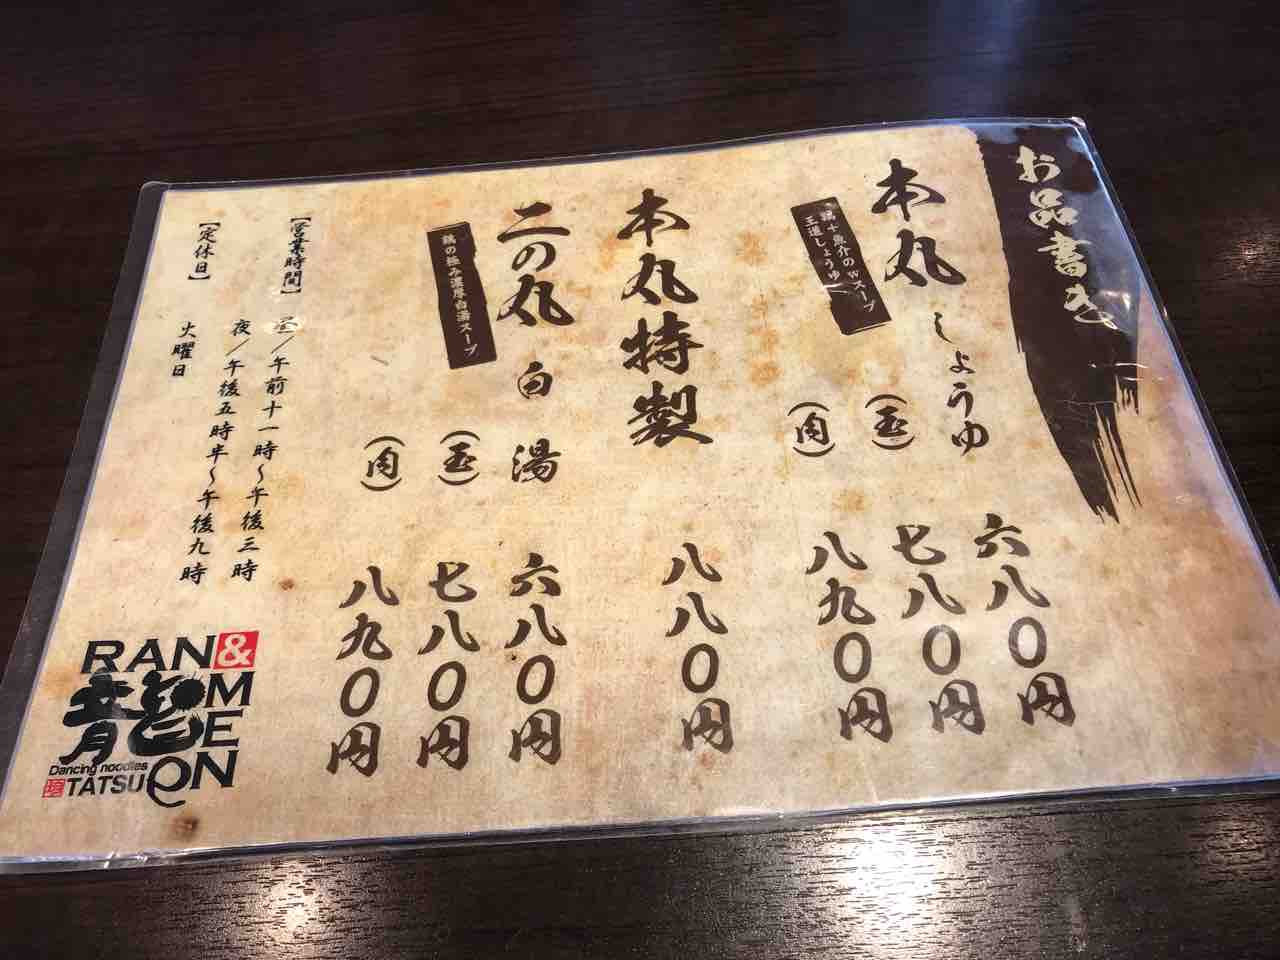 お品書き
本丸 しょうゆ 六八〇円
鶏+魚介のWスープ
王道しょうゆ
(玉) 七八〇円
(肉) 八九〇円
本丸特製 八八〇円
二の丸 白湯 六八〇円
鶏の極み濃厚白湯スープ
(玉) 七八〇円
(肉) 八九〇円
【営業時間】 昼/午前十一時〜午後三時
夜/午後五時半〜午後九時
【定休日】 火曜日
RAN&
MEN
龍
Dancing noodles
TATSU
ON